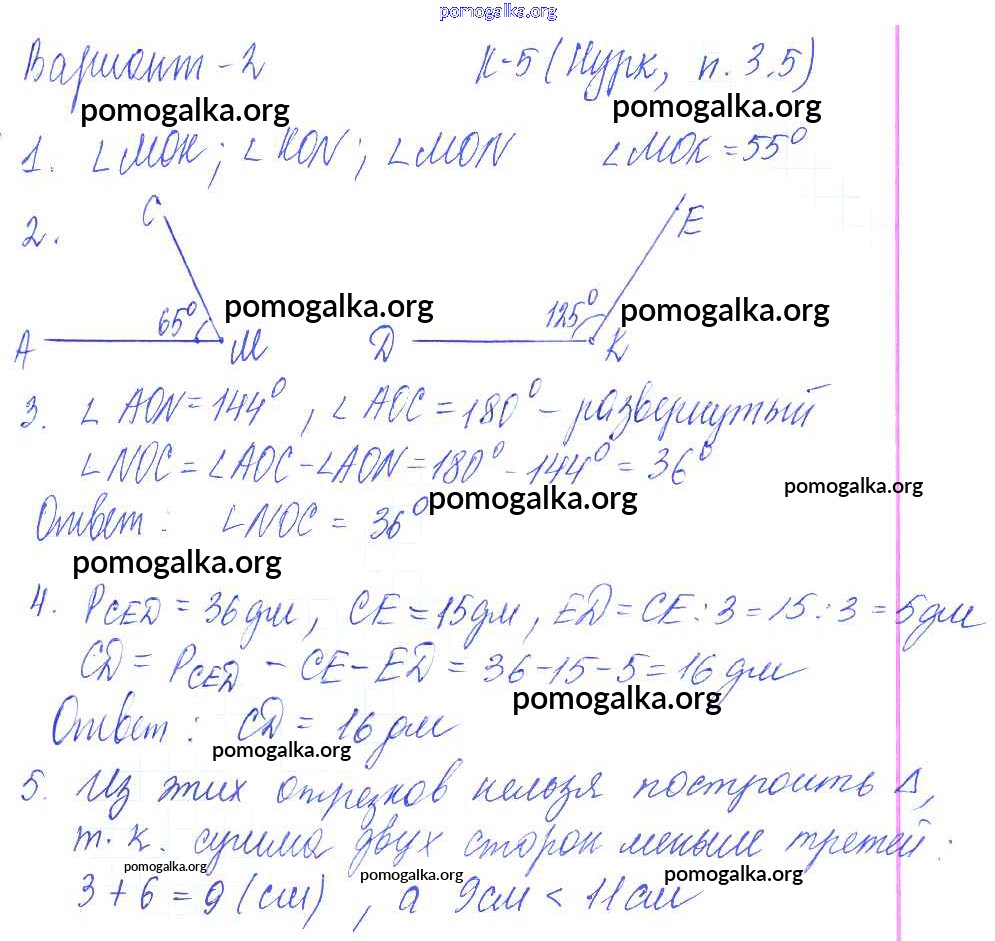 pomogalka.org
Вариант - 2 К-5 (Нурк, п. 3.5)
pomogalka.org pomogalka.org
1. ∠МОК; ∠KON; ∠MON ∠МОК = 55⁰
2. C E
65⁰ pomogalka.org 125⁰ pomogalka.org
A M D K
3. ∠AON = 144⁰, ∠AOC = 180⁰ - развернутый
∠NOC = ∠AOC - ∠AON = 180⁰ - 144⁰ = 36⁰
pomogalka.org pomogalka.org
Ответ: ∠NOC = 36⁰
pomogalka.org
4. PCED = 36 дм, CE = 15 дм, ED = CE : 3 = 15 : 3 = 5 дм
CD = PCED - CE - ED = 36 - 15 - 5 = 16 дм
pomogalka.org
Ответ: CD = 16 дм
pomogalka.org
5. Из этих отрезков нельзя построить Δ,
т. к. сумма двух сторон меньше третей:
pomogalka.org pomogalka.org pomogalka.org
3 + 6 = 9 (см), а 9 см < 11 см